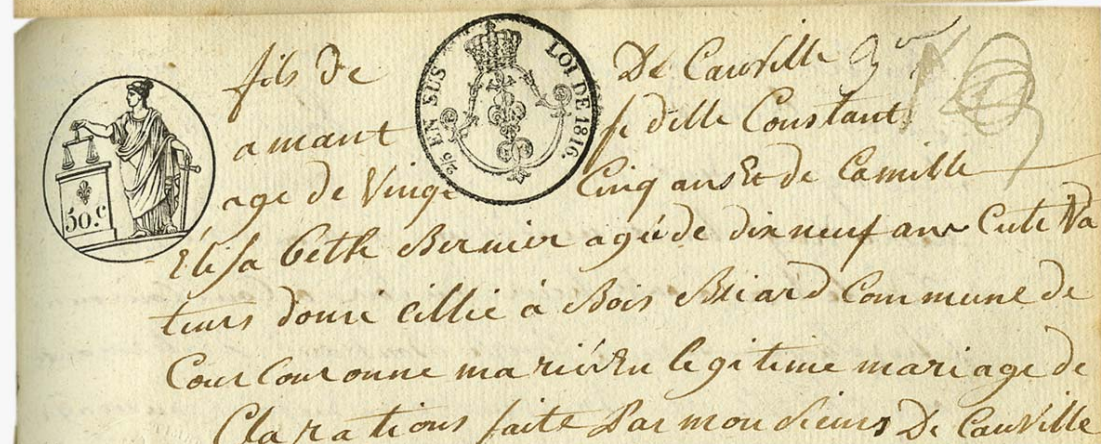 fils De De Cauville
amant fe delle Constant
age de Vingt Cinq ans Et de Camille
Elisabeth Bernier agée de dix neuf ans Culti Va
teurs domicillié à Bois Briard Commune de
Courcouronne marié En legitime mariage de
Clarations faite Par monsieurs De Cauville
50.c
25 EN SUS
LOI DE 1816.